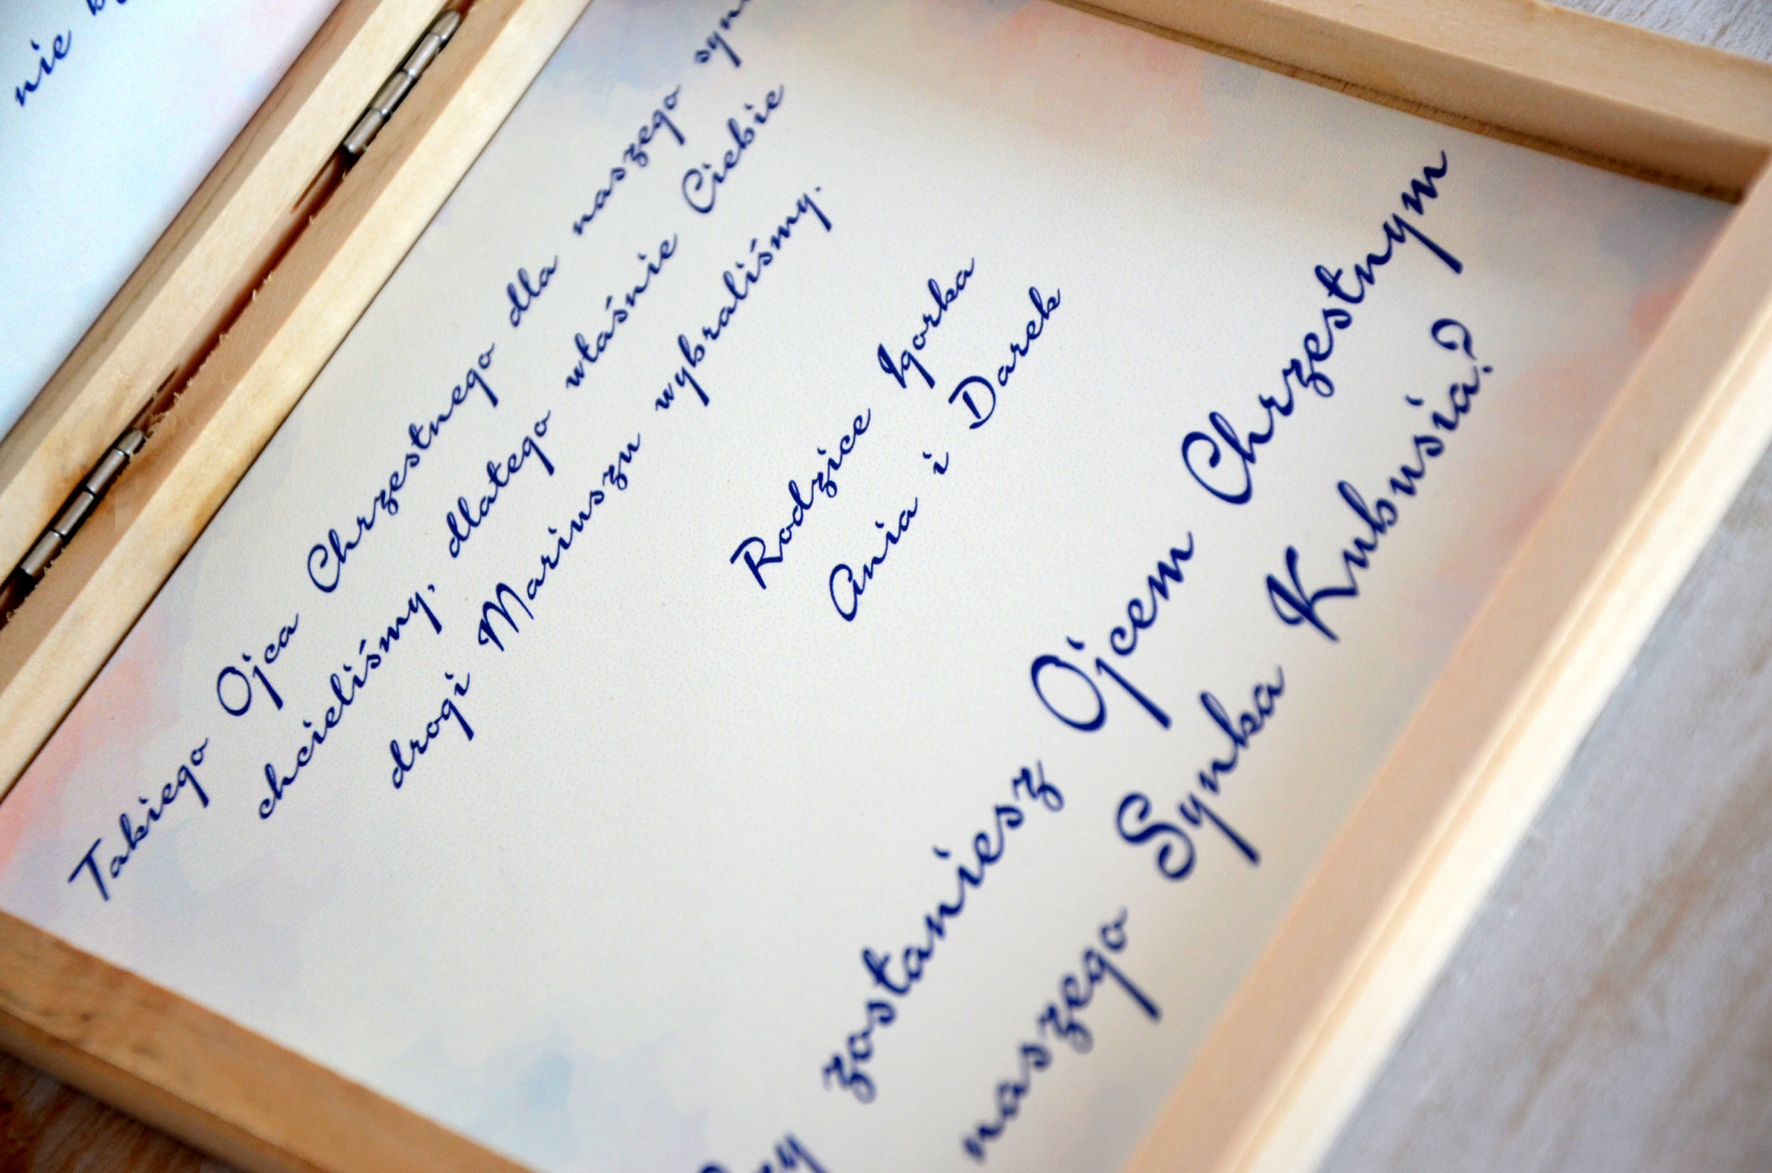 nie
Takiego Ojca Chrzestnego dla naszego
chcieliśmy, dlatego właśnie Ciebie
drogi Mariuszu wybraliśmy.
Rodzice Igorka
Ania i Darek
zostaniesz Ojcem Chrzestnym
naszego Synka Kubusia?